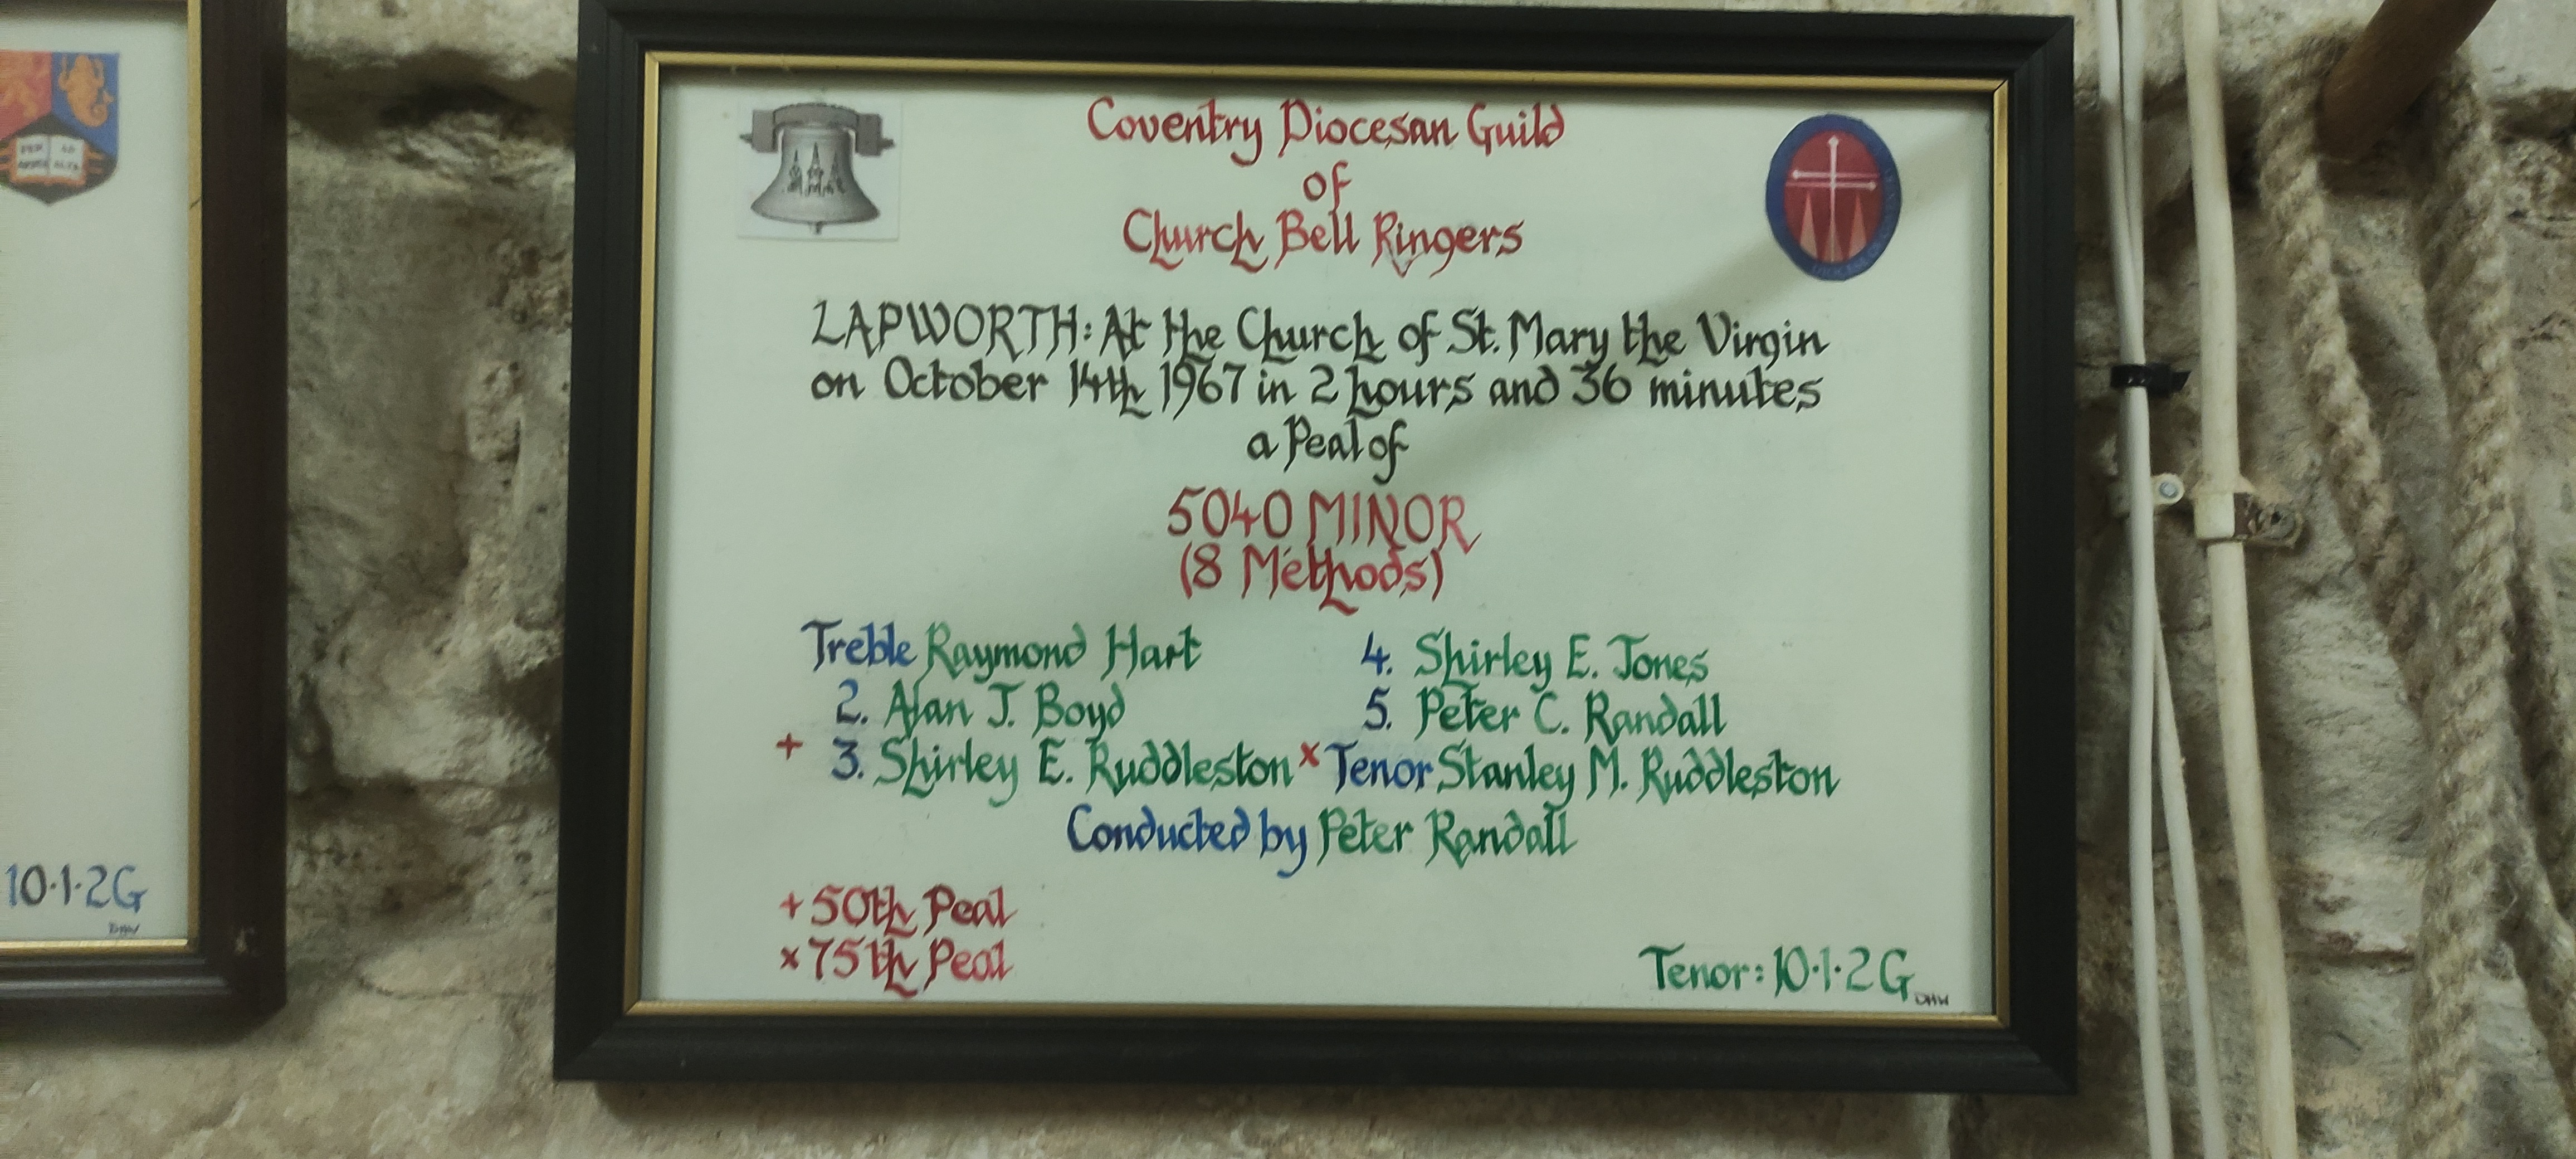 PER AD
ARDUA ALTA
10·1·2G
Coventry Diocesan Guild
of
Church Bell Ringers
LAPWORTH: At the Church of St. Mary the Virgin
on October 14th 1967 in 2 hours and 36 minutes
a Peal of
5040 MINOR
(8 Methods)
Treble Raymond Hart
2. Alan J. Boyd
+ 3. Shirley E. Ruddleston
4. Shirley E. Jones
5. Peter C. Randall
x Tenor Stanley M. Ruddleston
Conducted by Peter Randall
+ 50th Peal
x 75th Peal
Tenor: 10·1·2 G
DHW